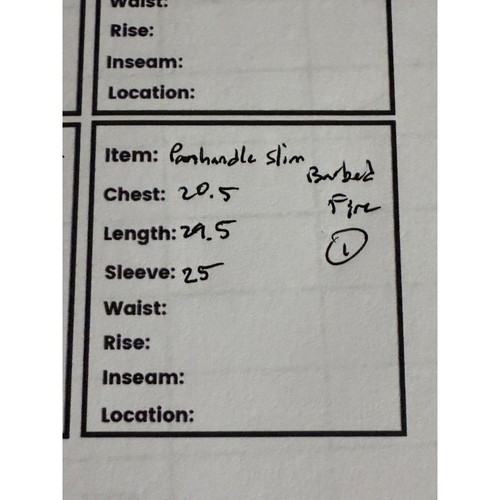 Waist:
Rise:
Inseam:
Location:
Item: Panhandle Slim
Barbed
Fire
1
Chest: 20.5
Length: 29.5
Sleeve: 25
Waist:
Rise:
Inseam:
Location: